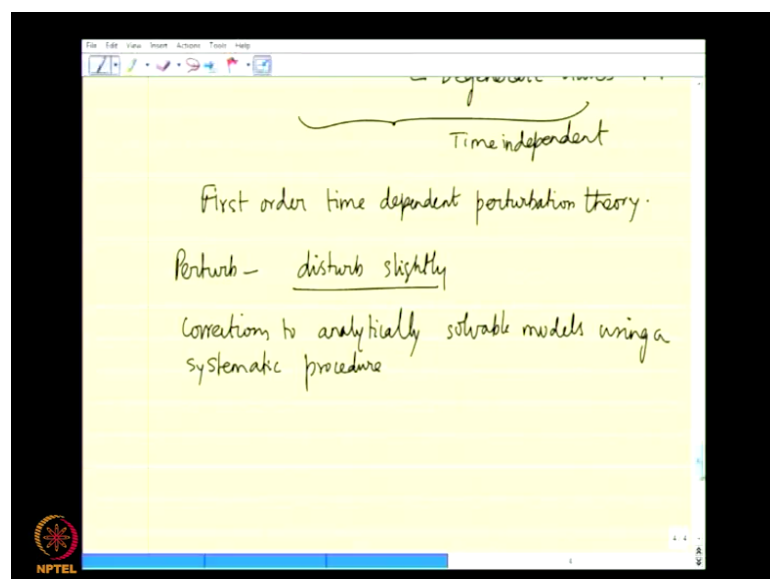 File Edit View Insert Actions Tools Help
Time independent
First order time dependent perturbation theory.
Perturb - disturb slightly
Corrections to analytically solvable models using a
systematic procedure
NPTEL